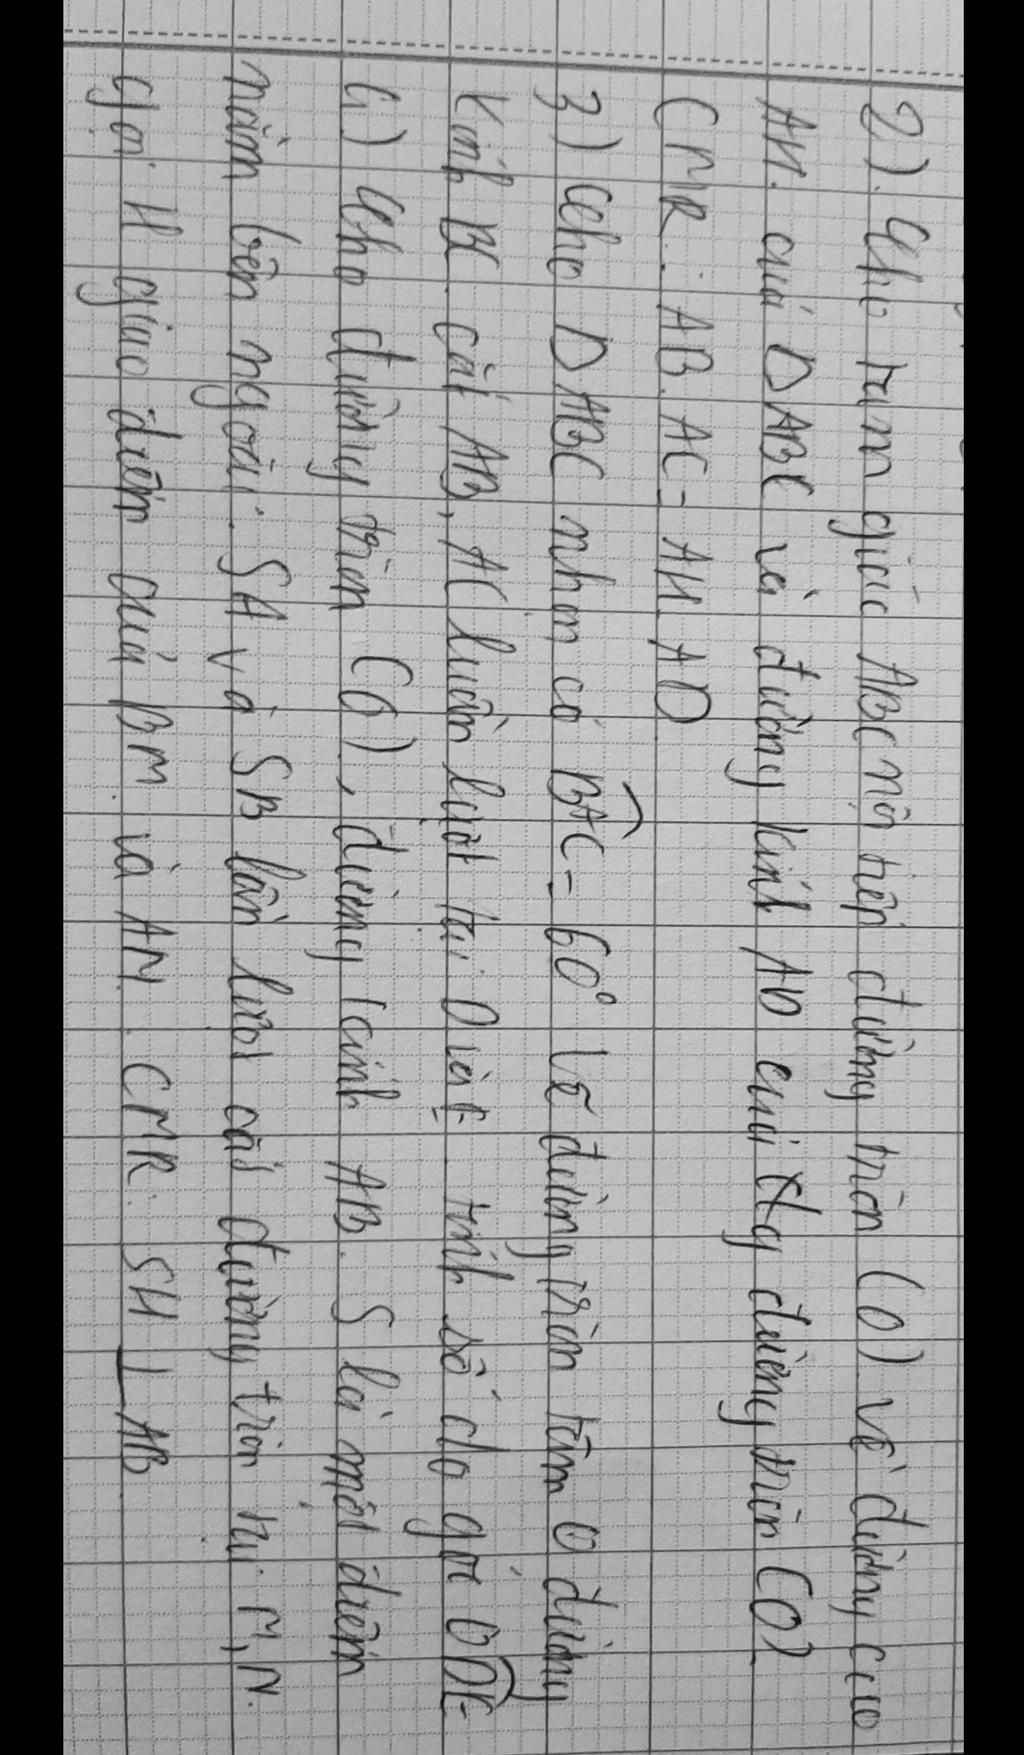 2). Cho tam giác ABC nội tiếp đường tròn (O). Vẽ đường cao
AH. của D ABC và đường kính AD của đường tròn (O).
CMR: AB. AC = AH. AD
3) Cho D ABC nhọn có BAC = 60° Vẽ đường tròn tâm O đường
kính BC cắt AB, AC lần lượt tại D và E. tính số đo góc ODE
4) Cho đường tròn (O), đường kính AB. S là một điểm
nằm bên ngoài. SA và SB lần lượt cắt đường tròn tại M, N.
Gọi H giao điểm của BM và AN. CMR: SH ⊥ AB